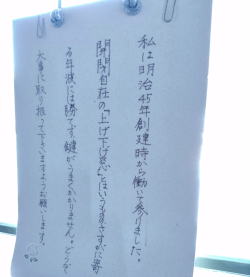 私は明治45年創建時から働いて参りました。
開閉自在の「上げ下げ窓」とはいうもののさすがに寄
る年波には勝てず、鍵がうまくかかりません。どうぞ
大事に取り扱って下さいますようお願いします。